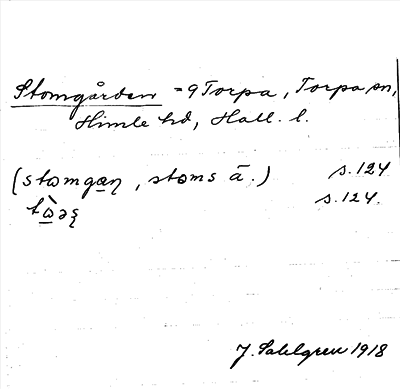 Stomgården = 9 Torpa, Torpa sn,
Himle hd, Hall. l.
(stωmgæɳ, stωms ā.) s.124
s.124.
J. Sahlgren 1918